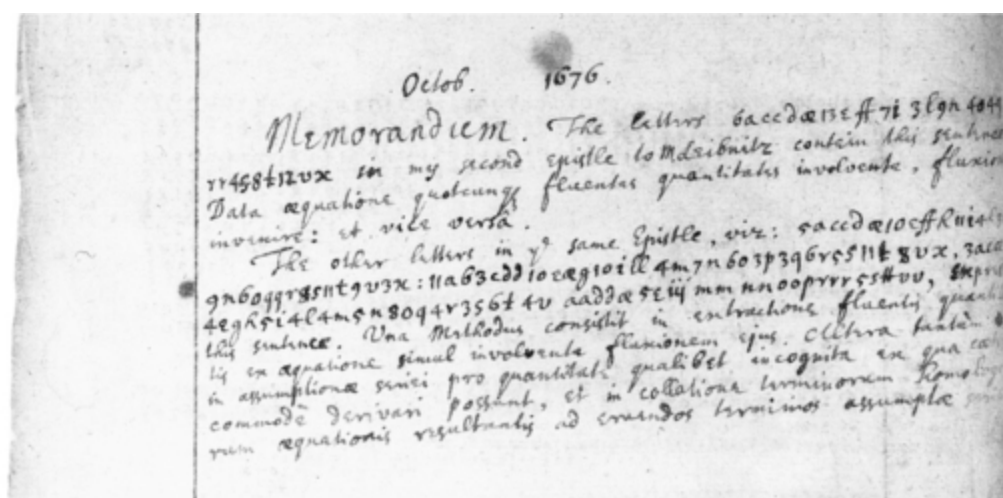 Octob. 1676.
Memorandum. The letters 6accdæ13eff7i3l9n4o4q
rr4s8t12vx in my second Epistle to M Leibnitz contein this sentence
Data æquatione quotcunq fluentes quantitates involvente, fluxiones
invenire: et vice versâ.
The other letters in yᵉ same Epistle, viz: 5accdæ10effh11i4l
9n6oqqr8s11t9v3x: 11ab3cdd10eæg10ill4m7n6o3p3q6r5s11t8vx, 3acæ
4egh5i4l4m5n8oq4r3s6t4v aaddæ5eiijmmnnooprrr5sttvv, expres
this sentence. Una Methodus consistit in extractione fluentis quanti
tis ex æquatione simul involvente fluxionem ejus. Altera tantum
in assumptione seriei pro quantitate qualibet incognita ex qua cæt
commodè derivari possunt, et in collatione terminorum homolog
rum æquationis resultantis ad eruendos terminos assumptæ